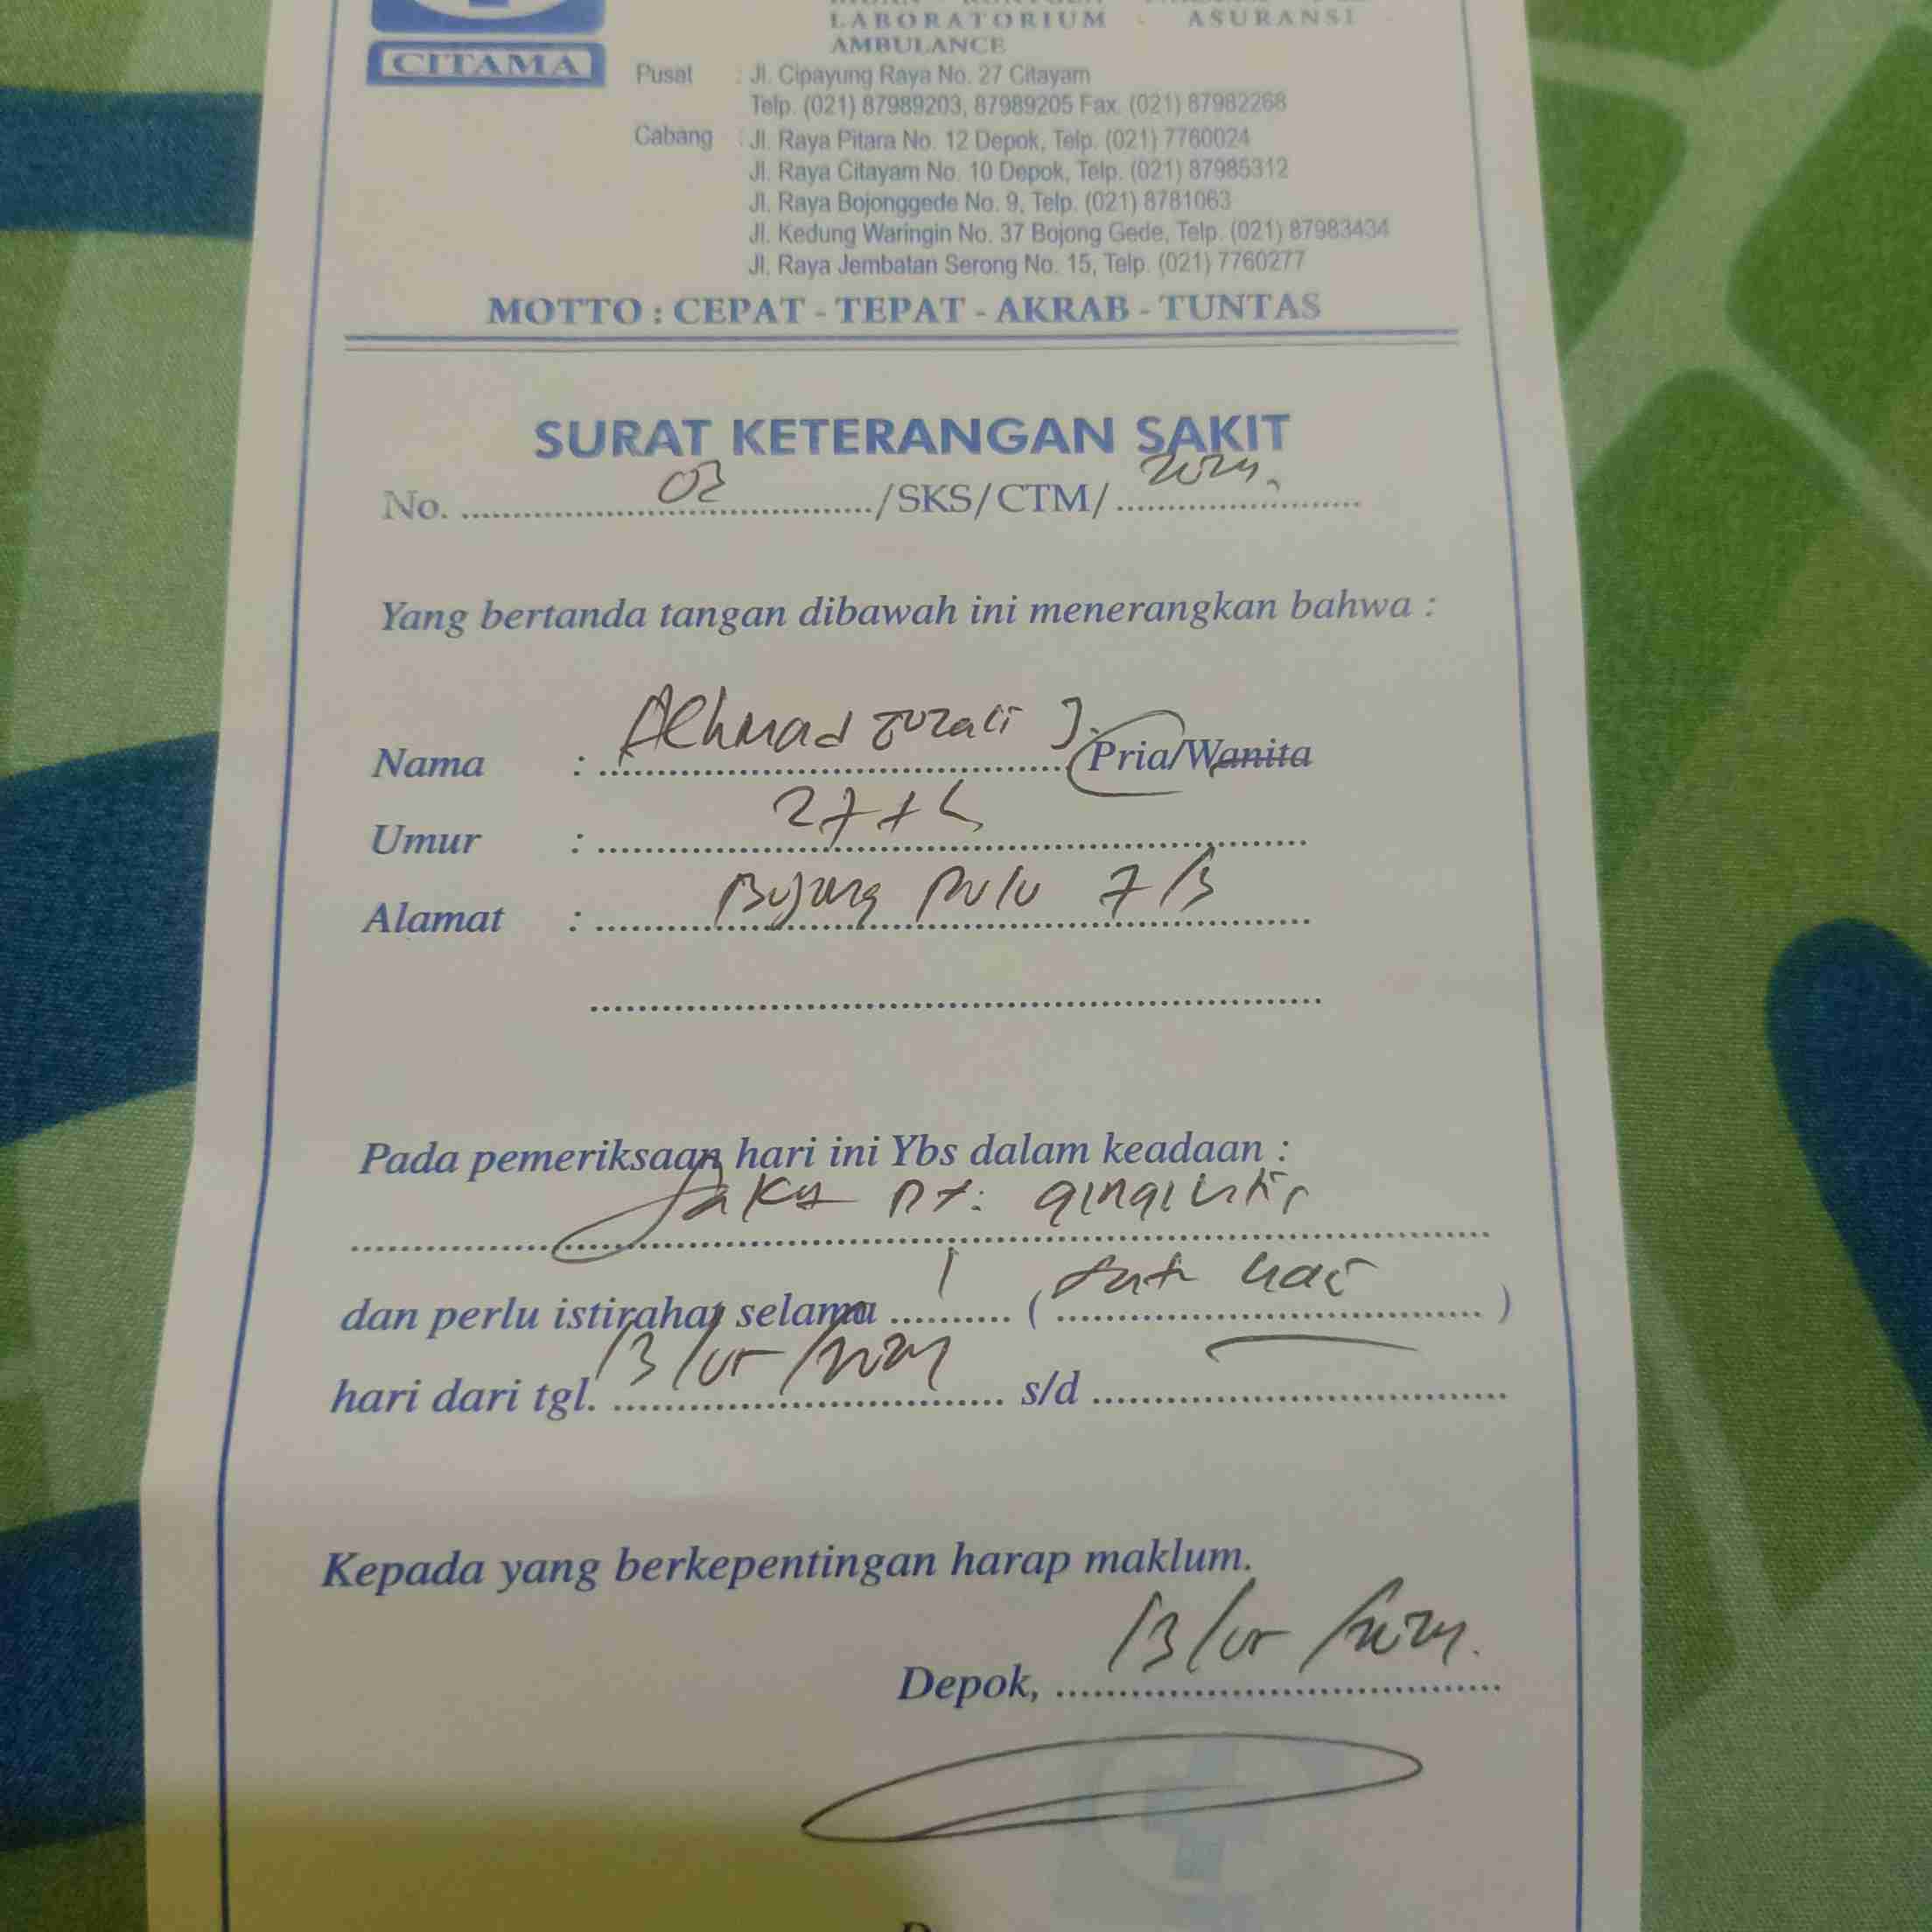 LABORATORIUM - ASURANSI
AMBULANCE
CITAMA
Pusat : Jl. Cipayung Raya No. 27 Citayam
Telp. (021) 87989203, 87989205 Fax. (021) 87982268
Cabang : Jl. Raya Pitara No. 12 Depok, Telp. (021) 7760024
Jl. Raya Citayam No. 10 Depok, Telp. (021) 87985312
Jl. Raya Bojonggede No. 9, Telp. (021) 8781063
Jl. Kedung Waringin No. 37 Bojong Gede, Telp. (021) 87983434
Jl. Raya Jembatan Serong No. 15, Telp. (021) 7760277
MOTTO : CEPAT - TEPAT - AKRAB - TUNTAS
SURAT KETERANGAN SAKIT
No. 03 /SKS/CTM/ 2024
Yang bertanda tangan dibawah ini menerangkan bahwa :
Nama : Akhmad J. Pria/Wanita
Umur : 27 th
Alamat : Bojong Pulo 7/3
Pada pemeriksaan hari ini Ybs dalam keadaan :
gingivitis
dan perlu istirahat selama 1 ( satu hari )
hari dari tgl. 13/05/2024 s/d
Kepada yang berkepentingan harap maklum.
Depok, 13/05/2024.